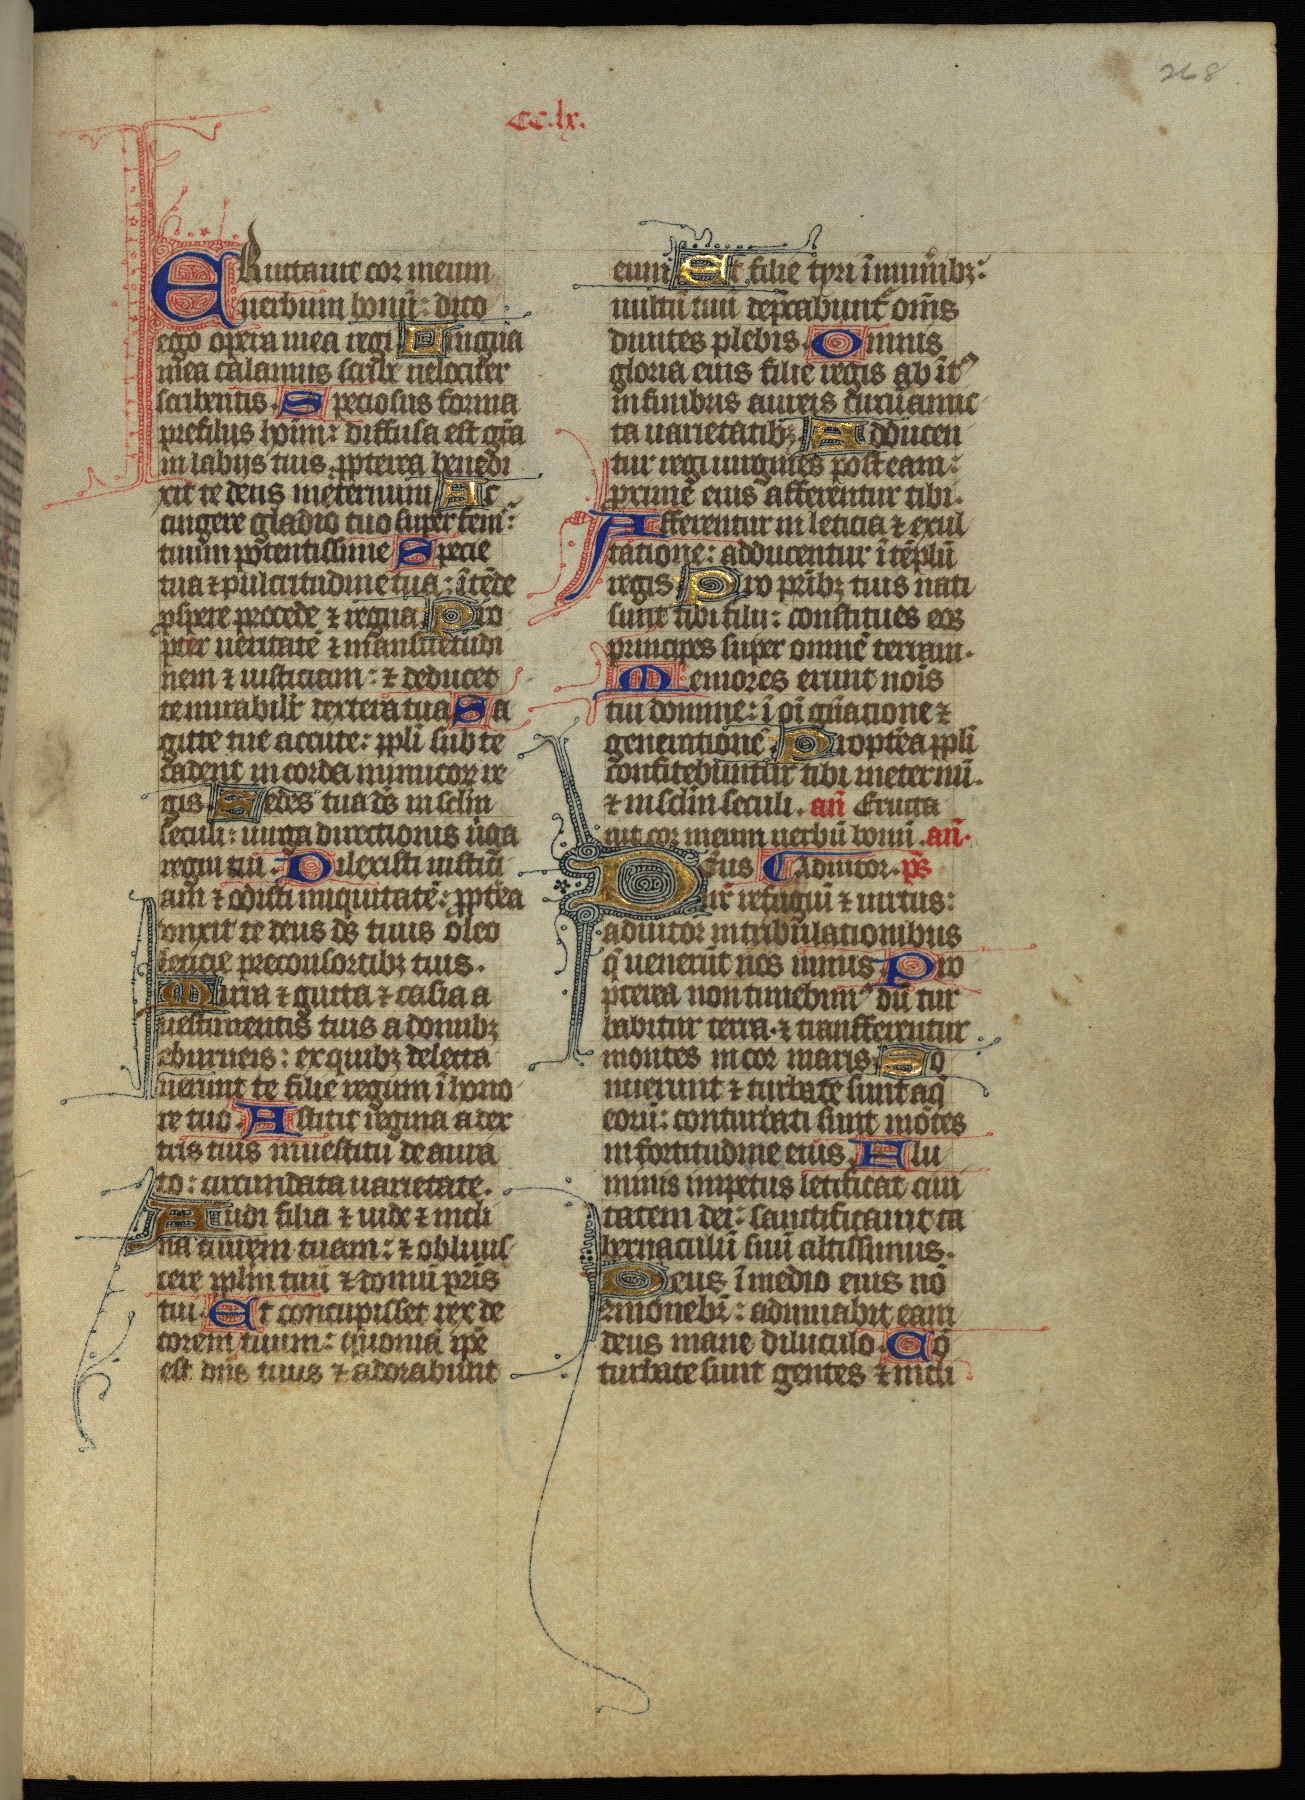 268
CC.lx.
ERuctauit cor meum
uerbum bonū: dico
ego opera mea regi. Lingua
mea calamus scribe uelociter
scribentis. Speciosus forma
prefilijs hoīm: diffusa est gr̄a
in labijs tuis, ꝓpterea benedi
xit te deus in eternum Ac
cingere gladio tuo super fem̄:
tuum potentissime Specie
tua ⁊ pulcritudine tua: ītēde
ꝓspere procede ⁊ regna. Pro
pter ueritatē ⁊ mansuetudi
nem ⁊ iusticiam: ⁊ deducet
te mirabilr̄ dextera tua Sa
gitte tue accute: ppli sub te
cadent in corda inimicoꝝ re
gis. Sedes tua dš in sclm̄
seculi: uirga directionis ūga
regni tui. Dilexisti iusticī
am ⁊ odisti iniquitatē: ꝓpterea
vnxit te deus ds̄ tuus oleo
leticie preconsortibꝫ tuis.
Mirra ⁊ gutta ⁊ casia a
uestimentis tuis a domibꝫ
eburneis: ex quibꝫ delecta
uerunt te filie regum ī hono
re tuo. Astitit regina a dex
tris tuis in uestitū de aura
to: circundata uarietate.
Audi filia ⁊ uide ⁊ incli
na aurem tuam: ⁊ obliuis
cere pplm tuū ⁊ domū pr̄is
tui. Et concupisset rex de
corem tuum: quoniā ip̄e
est dn̄s tuus ⁊ adorabunt
eum Et filie tyri ī munībꝫ:
uultū tuū dep̄cabunt̄ oms̄
diuites plebis. Omnis
gloria eius filie regis ab īt9
in fimbris aureis circūamic
ta uarietatibꝫ. Adducen
tur regi uirgines post eam:
proximē eius afferentur tibi.
Afferentur in leticia ⁊ exul
tatione: adducentur ī tēplū
regis. Pro pr̄ibꝫ tuis nati
sunt tibi filii: constitues eos
principes super omnē terram.
Memores erunt nōis
tui domine: ī oī gn̄atione ⁊
generationē. Propterea ppli
confitebuntur tibi in eternū.
⁊ in sclm̄ seculi. an̄ Eructa
uit cor meum uerbū bonū. an̄.
Deus Adiutor. ps̄
nr̄ refugiū ⁊ uirtus:
adiutor in tribulationibus
q̄ uenerūt nos nimis Pro
pterea non timebim9 dū tur
babitur terra. ⁊ transferentur
montes in cor maris So
nuerunt ⁊ turbate sunt aq̄
eorū: conturbati sunt mōtes
in fortitudine eius. Flu
minis impetus letificat ciui
tatem dei: sanctificauit ta
bernaculū suū altissimus.
Deus ī medio eius nō
9mouebr̄: adiuuabit eam
deus mane diluculo. Cō
turbate sunt gentes ⁊ incli